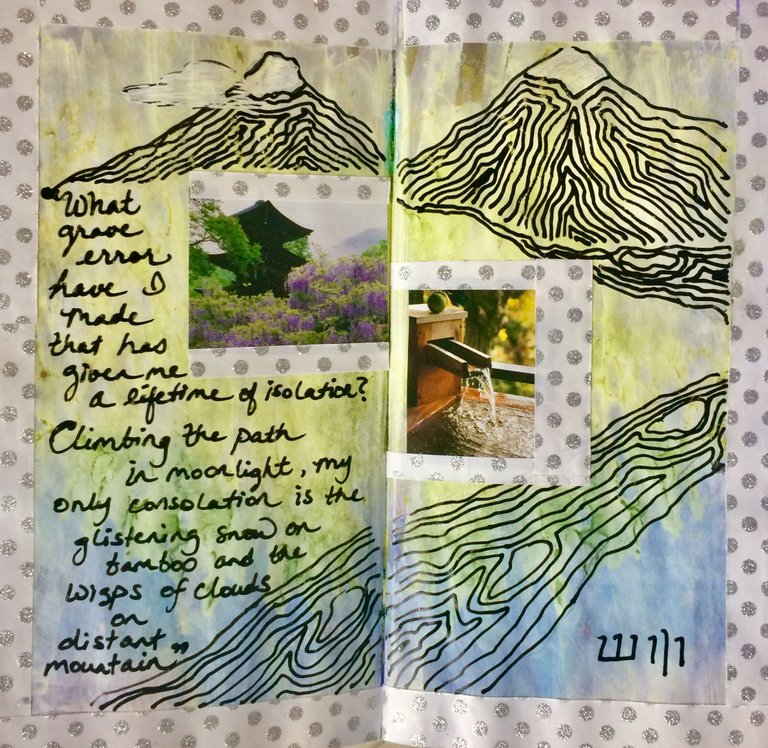 What
grave
error
have I
made
that has
given me
a lifetime of isolation?
Climbing the path
in moonlight, my
only consolation is the
glistening snow on
bamboo and the
wisps of clouds
on
distant
mountain"